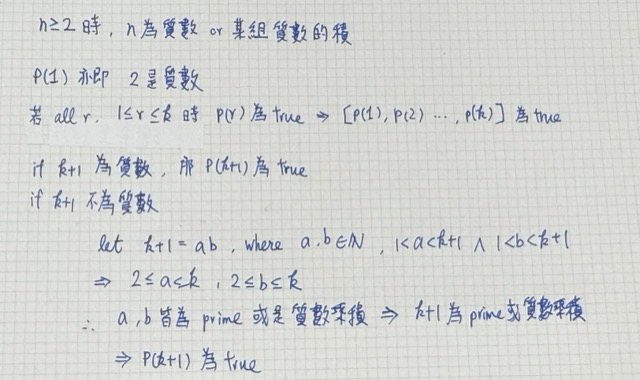 n≥2 時, n為質數 or 某組質數的積
P(1) 亦即 2是質數
若 all r. 1≤r≤k 時 P(r)為true ⇒ [P(1), P(2) ..., P(k)] 為true
if k+1 為質數, 那 P(k+1)為true
if k+1 不為質數
let k+1 = ab, where a.b∈N, 1<a<k+1 ∧ 1<b<k+1
⇒ 2≤a≤k, 2≤b≤k
∴ a,b皆為 prime 或是 質數乘積 ⇒ k+1為prime或質數乘積
⇒ P(k+1) 為true